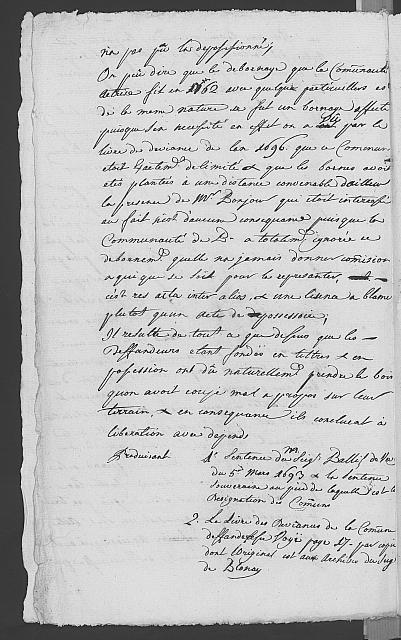 n'a pas pu la depossessionné;
On peu dire que le debornage que la Comunauté
actrice fit en 1762 avec quelques particulliers es
de la meme nature ce fut un bornage affecté
puisque sen necessité en effet on a par le
livre de deviance de l'an 1696. que ce Commun
etoit de limité & que les bornes avoit
etés plantés a un distance convenable d'ailleur
la presence de Mr. Bonjour qui etoit interessé
au fait n'est d'aucun consequance puisque la
Communauté de B- a totalemt. ignorée ce
debornemt. quelle n'a jamais donner comission
a qui que ce soit pour la representer,
c'est res acta inter alios, & une lisura a blame
plutot qu'un acte de possessoire;
Il resulte de tout a que dessus que les
Deffandeurs etant fondés en tittres & en
possession ont dû naturellemt. prendre le bois
qu'on avoit coupé mal a propos sur leur
terrain, & en consequance ils concluent à
liberation avec depends
Produisant
1º Sentence du Seigr. Ballif de Vev
du 5e. Mars 1693 & la Sentence
Souveraine au pied de laquelle c'est la
Designation des Comuns
2. Le Livre des Deviances de la Comune
deffanderesse page 17- par copie
dont l'Original est aux Archives du Seigr
de Blonay